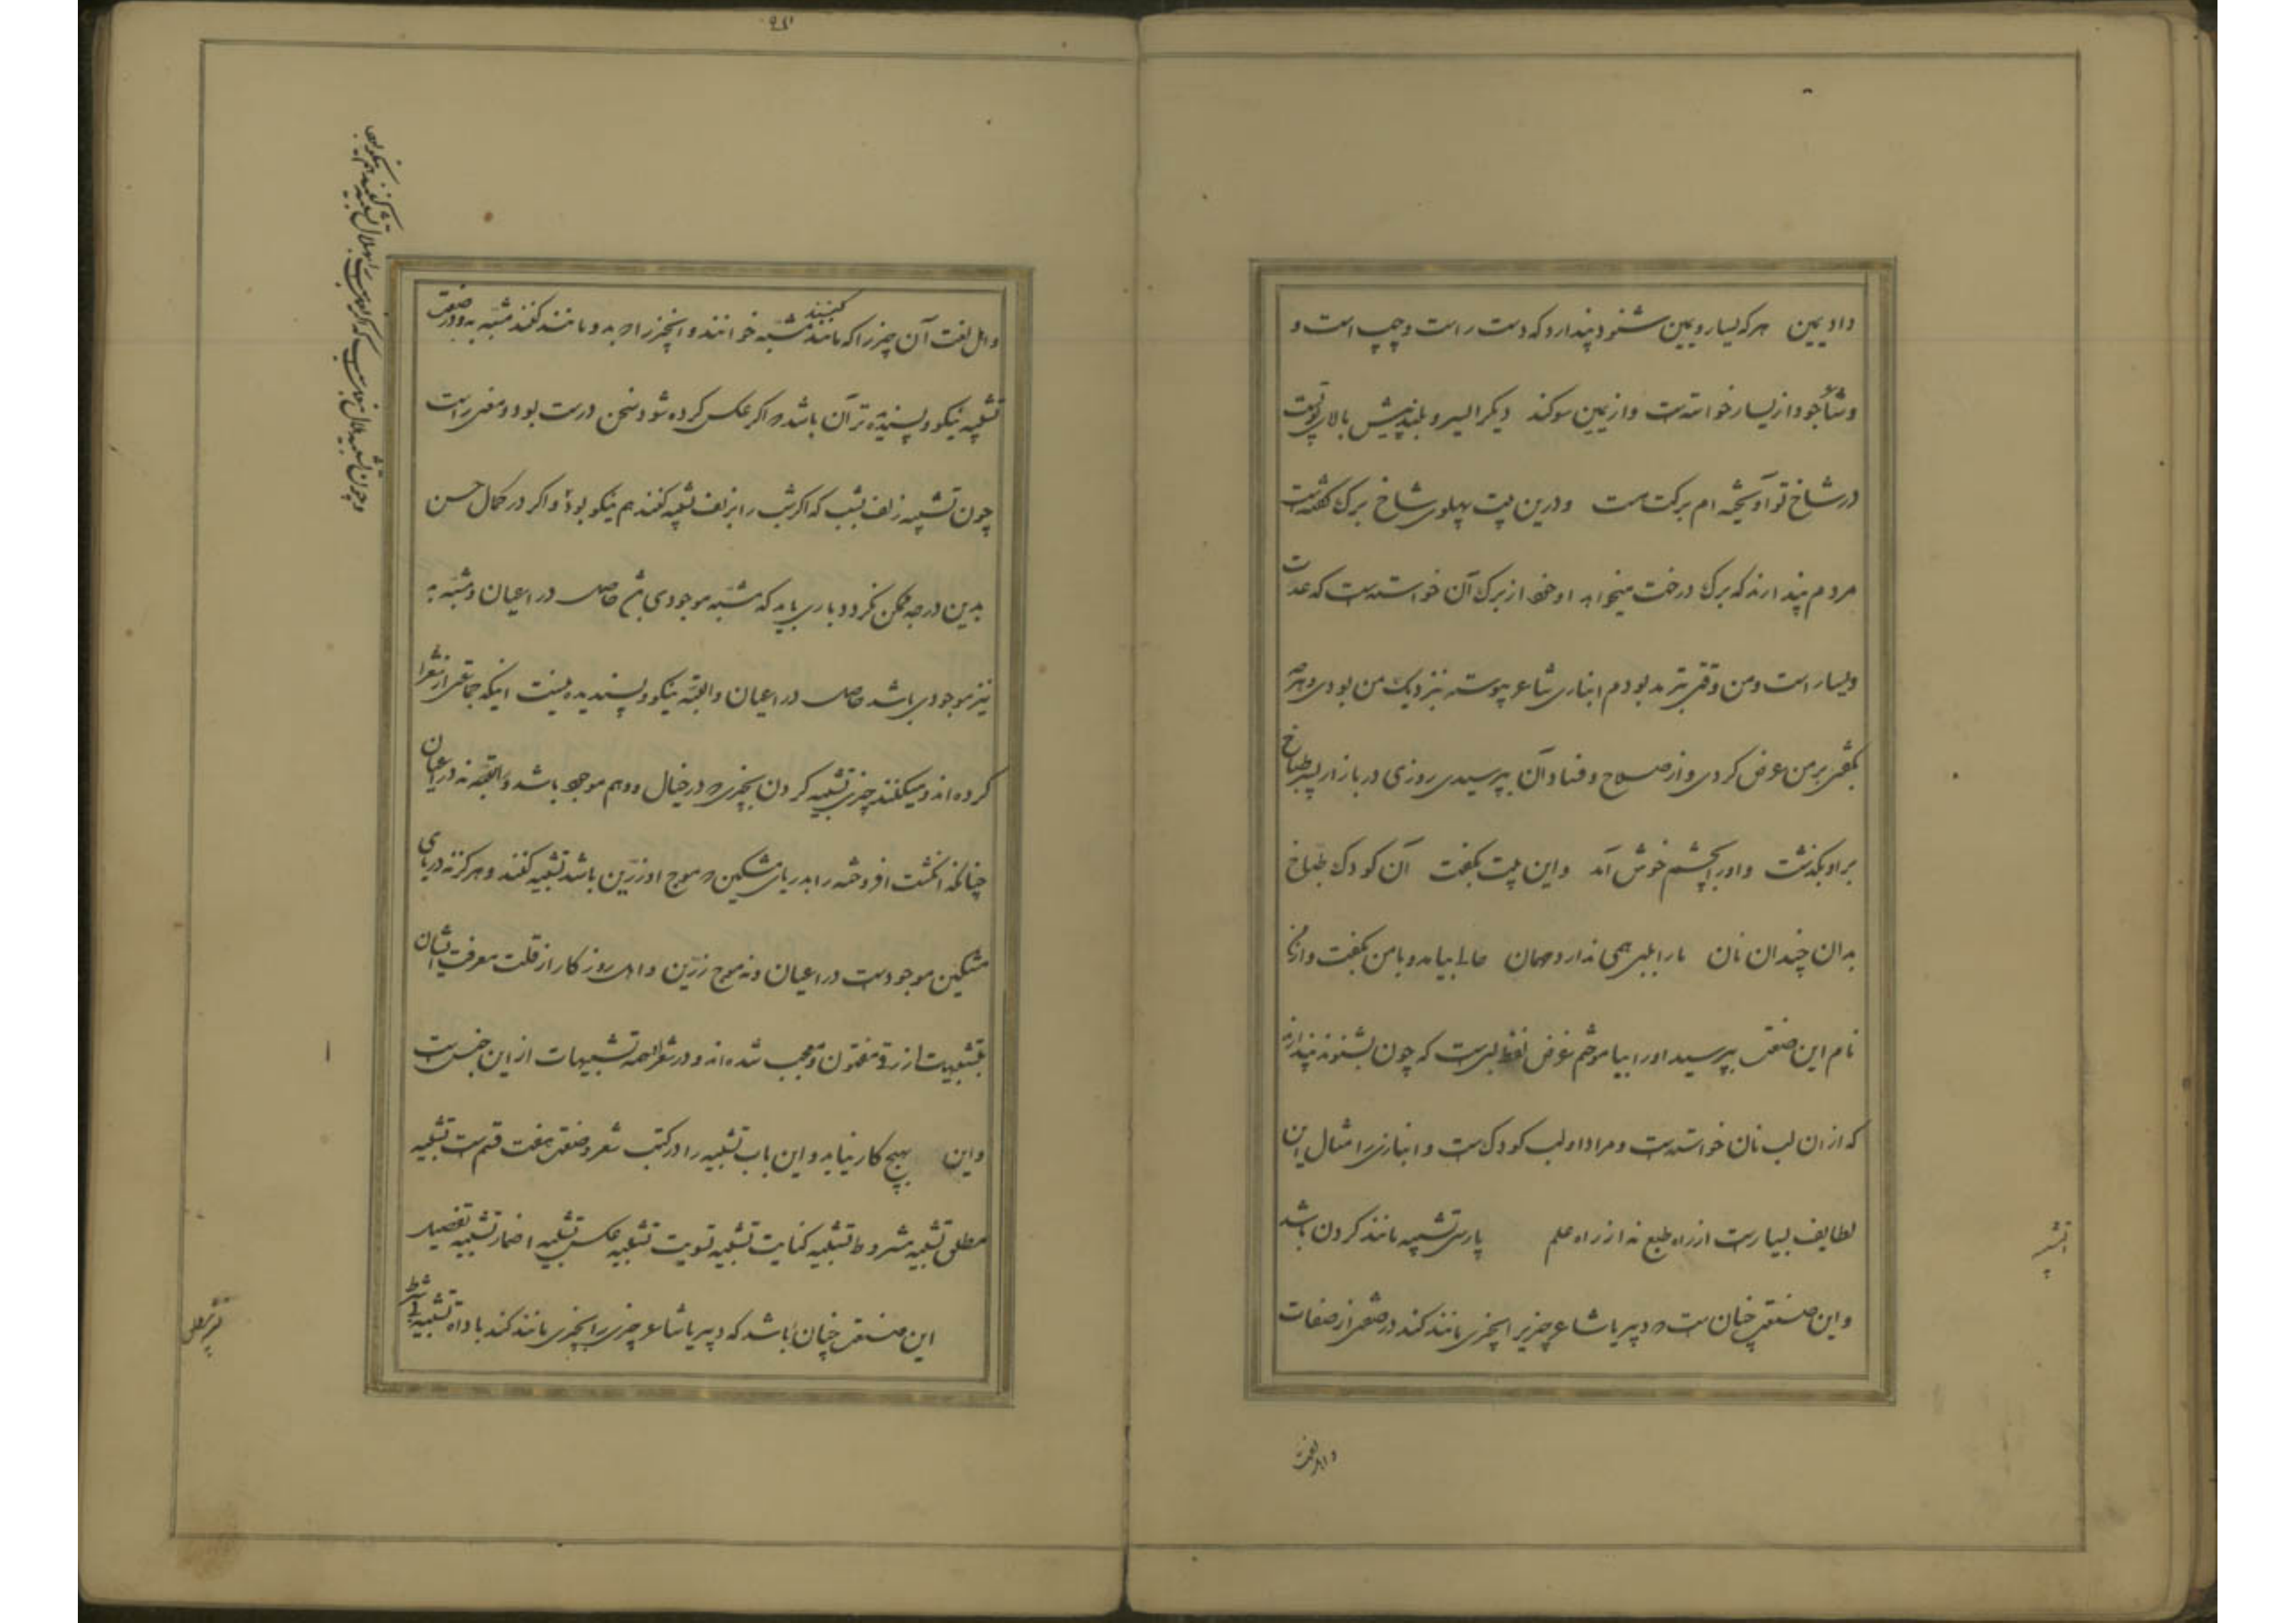 داد یمین هر که یسار و یمین شنود پندارد که دست راست و چپ است و
و شاعر خود از یسار خواسته است و از یمین سوکند دیکر ای سرو بلند پیش بالای تو پست
در شاخ تو آویخته ام برکت هست و درین بیت پهلوی شاخ برک گفته است
مردم پندارند که برک درخت میخواهد او خود از برک آن خواسته است که عدت
و یسار است و من وقتی بترمد بودم انباری شاعر پیوسته بنزدیک من بودی و هر چه
بگفتی بر من عرض کردی و از صلاح و فساد آن بپرسیدی روزی در بازار پسر طباخ
بر او بگذشت و او را بچشم خوش آمد و این بیت بگفت آن کودک طباخ
بدان چندان نان ما را بلبی همی ندارد مهمان حالی بیامد و با من بگفت و از من
نام این صنعت بپرسید او را بیاموختم غرض لفظ لب است که چون بشنوند پندارند
که از آن لب نان خواسته است و مراد او لب کودک است و انباری را امثال این
لطایف بسیار است از راه طبع نه از راه علم پارسی تشبیه مانند کردن باشد
و این صنعت چنان است که دبیر یا شاعر چیزیرا بچیزی مانند کند در صفتی از صفات
و اهل لغت
و اهل لغت آن چیز را که مانند کنند مشبه خوانند و آنچیز را که بدو مانند کنند مشبه به و در صنعت
تشبیه نیکو و پسندیده تر آن باشد که اکر عکس کرده شود سخن درست بود و معنی راست
چون تشبیه زلف بشب که اکر شب را بزلف تشبیه کنند هم نیکو بود و اکر در کمال حسن
بدین درجه ممکن نکردد باری باید که مشبه موجودی باشد حاصل در اعیان و مشبه به
نیز موجودی باشد حاصل در اعیان و البته نیکو و پسندیده نیست اینکه جماعتی از شعرا
کرده اند و میکنند چیزی تشبیه کردن بچیزی که در خیال و وهم موجود باشد و البته نه در اعیان
چنانکه انگشت افروخته را بدریای مشکین که موج او زرین باشد تشبیه کنند و هرکز نه دریای
مشکین موجود است در اعیان و نه موج زرین و اهل روزکار از قلت معرفت ایشان
بتشبیهات ازرقی مفتون و معجب شده اند و در شعر او همه تشبیهات از این جنس است
و این بهیچ کار نیاید و این باب تشبیه را در کتب شعر و صنعت هفت قسم است تشبیه
مطلق تشبیه مشروط تشبیه کنایت تشبیه تسویت تشبیه عکس تشبیه اضمار تشبیه تفضیل
این صنعت چنان باشد که دبیر یا شاعر چیزی را بچیزی مانند کند باداة تشبیه بی شرط